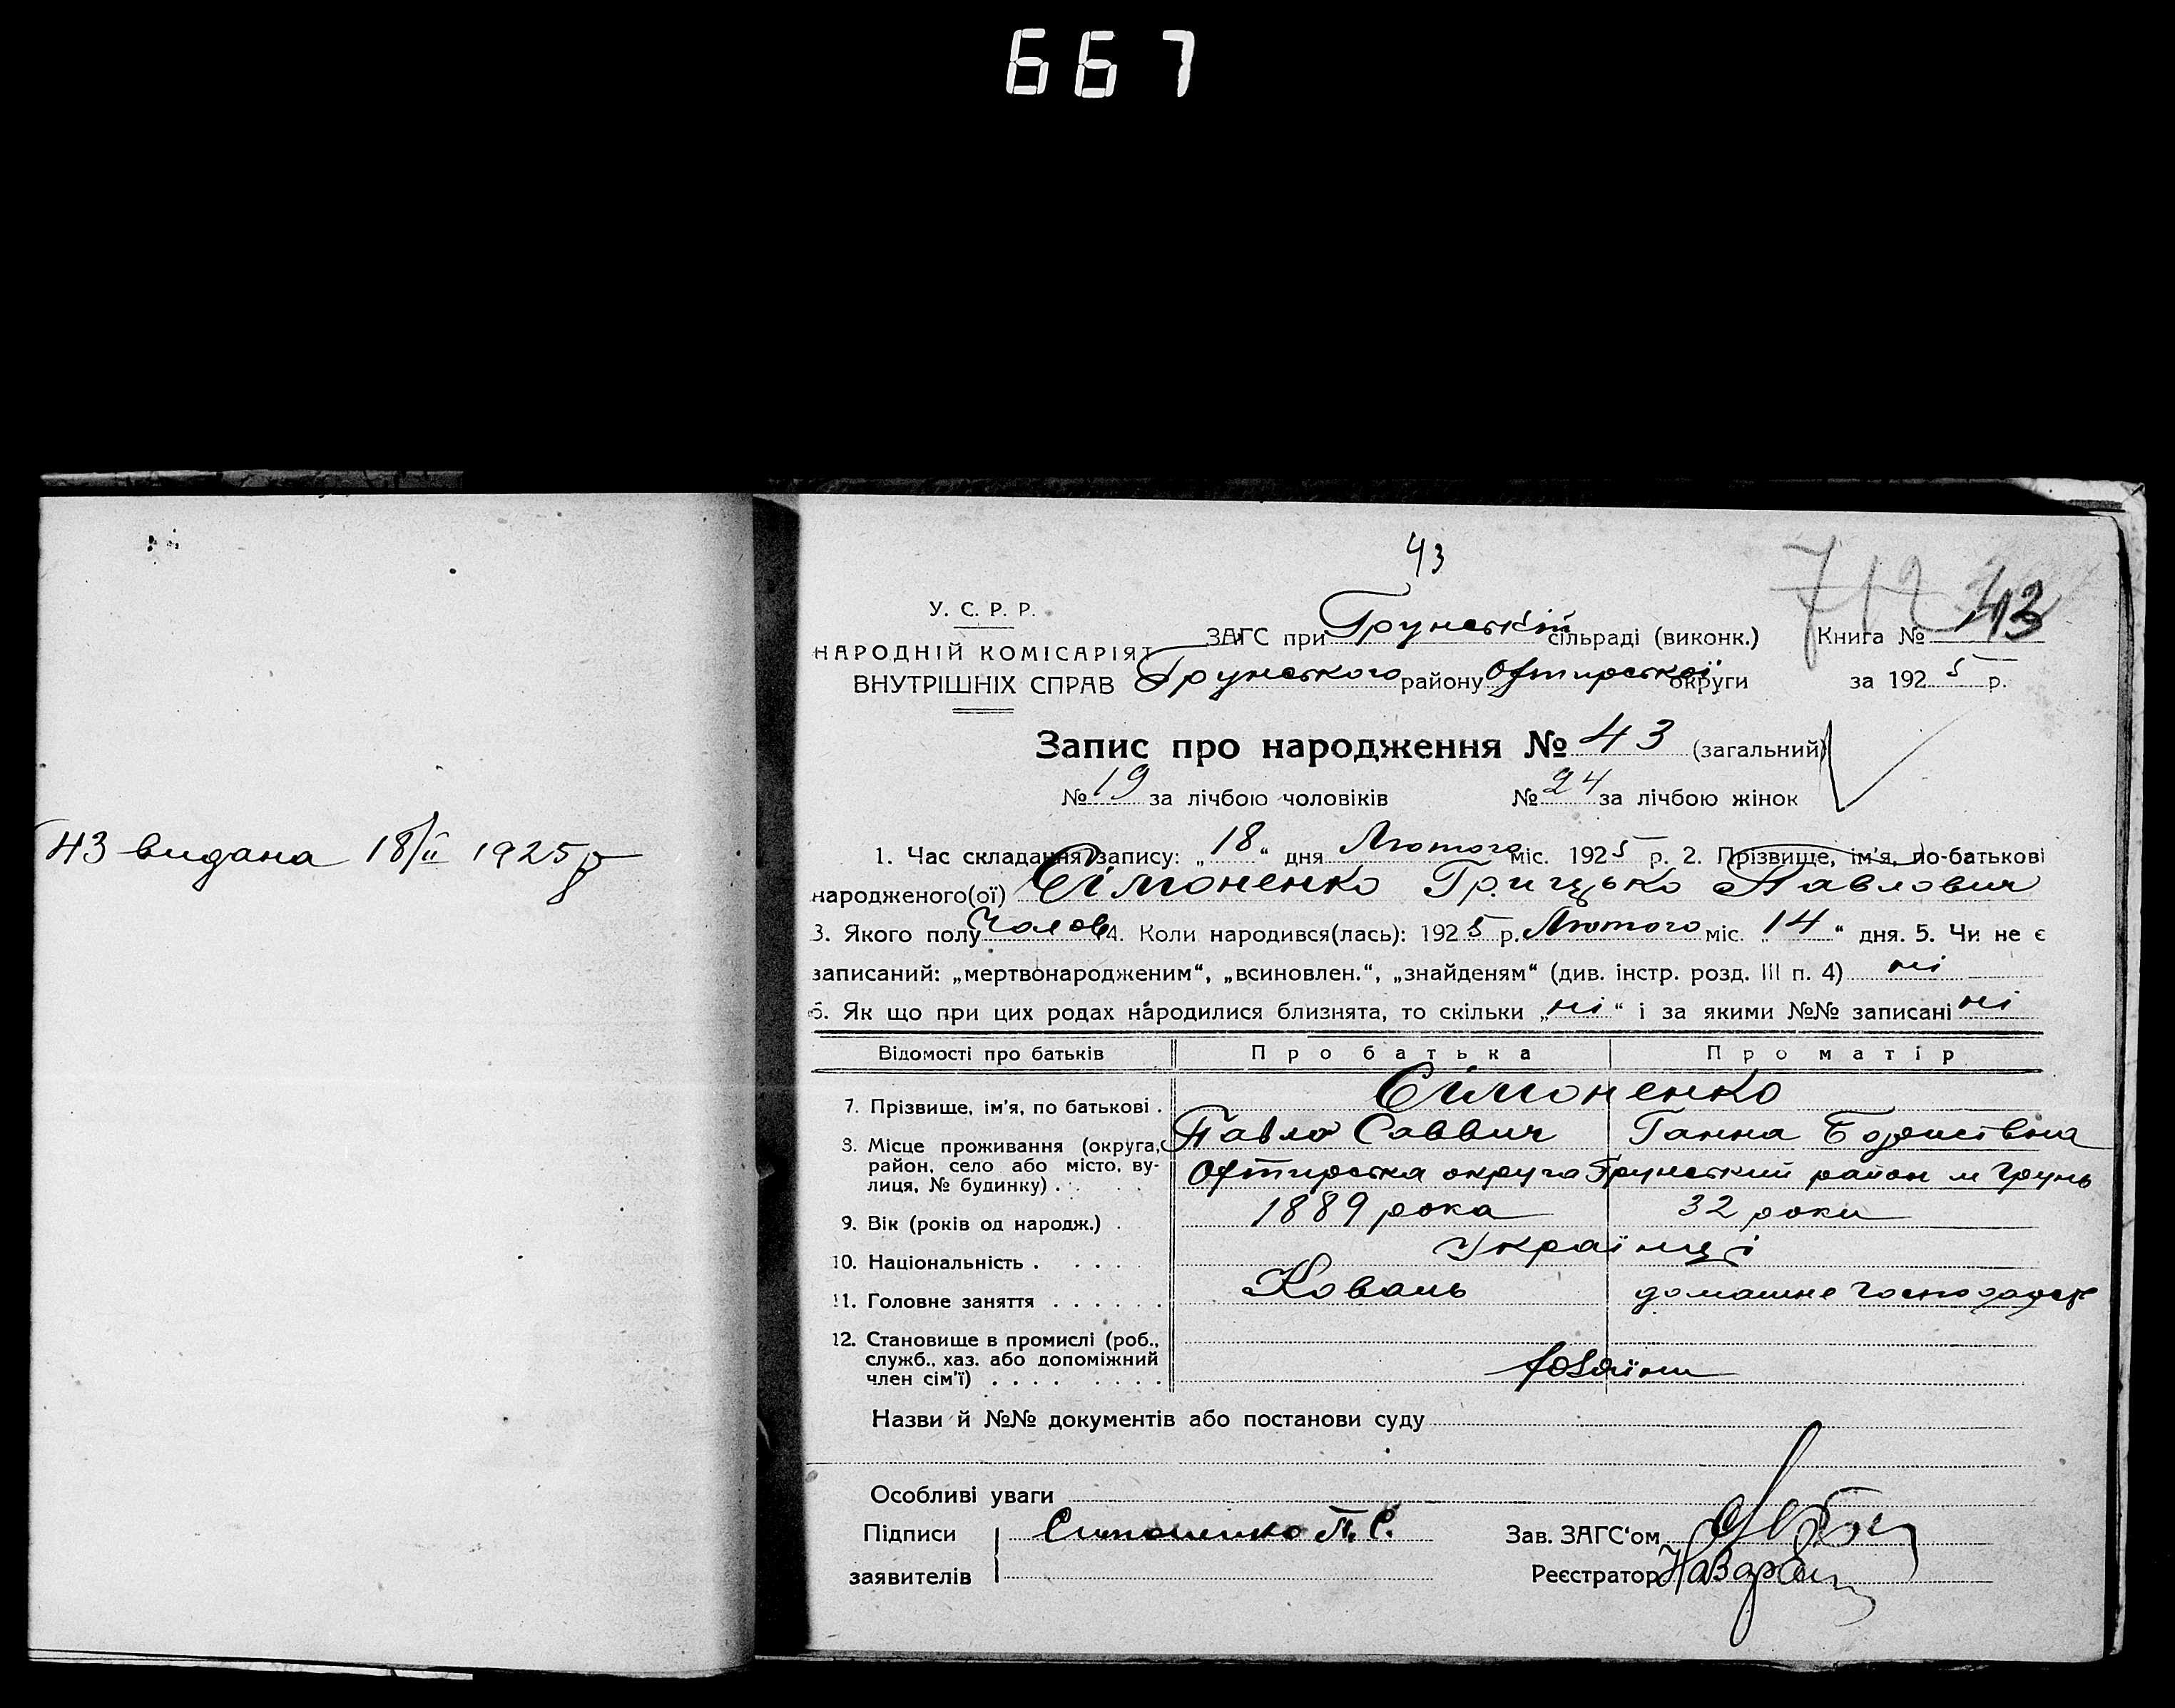 667
43 видана 18/II 1925 р
43
712
43
У. С. Р. Р.
НАРОДНІЙ КОМІСАРІЯТ
ВНУТРІШНІХ СПРАВ
ЗАГС при Грунській сільраді (виконк.) Книга №
Грунського району Охтирської округи за 1925 р.
Запис про народження № 43 (загальний)
№ 19 за лічбою чоловіків № 24 за лічбою жінок
1. Час складання запису: „18“ дня Лютого міс. 1925 р. 2. Прізвище, ім'я, по-батькові
народженого(ої) Сімоненко Грицько Павлович
3. Якого полу Чолов 4. Коли народився(лась): 1925 р. Лютого міс. „14“ дня. 5. Чи не є
записаний: „мертвонародженим“, „всиновлен.“, „знайденям“ (див. інстр. розд. III п. 4) ні
6. Як що при цих родах народилися близнята, то скільки „ні“ і за якими №№ записані ні
Відомості про батьків Про батька Про матір
7. Прізвище, ім'я, по батькові . Сімоненко
Павло Саввич Ганна Борисівна
8. Місце проживання (округа, район, село або місто, ву-
лиця, № будинку) . Охтирська округа Грунський район м Грунь
9. Вік (років од народж.) . 1889 рока 32 роки
10. Національність . . . . . Українці
11. Головне заняття . . . . . . Коваль домашне господарст
12. Становище в промислі (роб.,
служб., хаз. або допоміжний
член сім'ї) . . . . . . . . Хозяїни
Назви й №№ документів або постанови суду
Особливі уваги
Підписи Симоненко П. С. Зав. ЗАГС'ом
заявителів Реєстратор